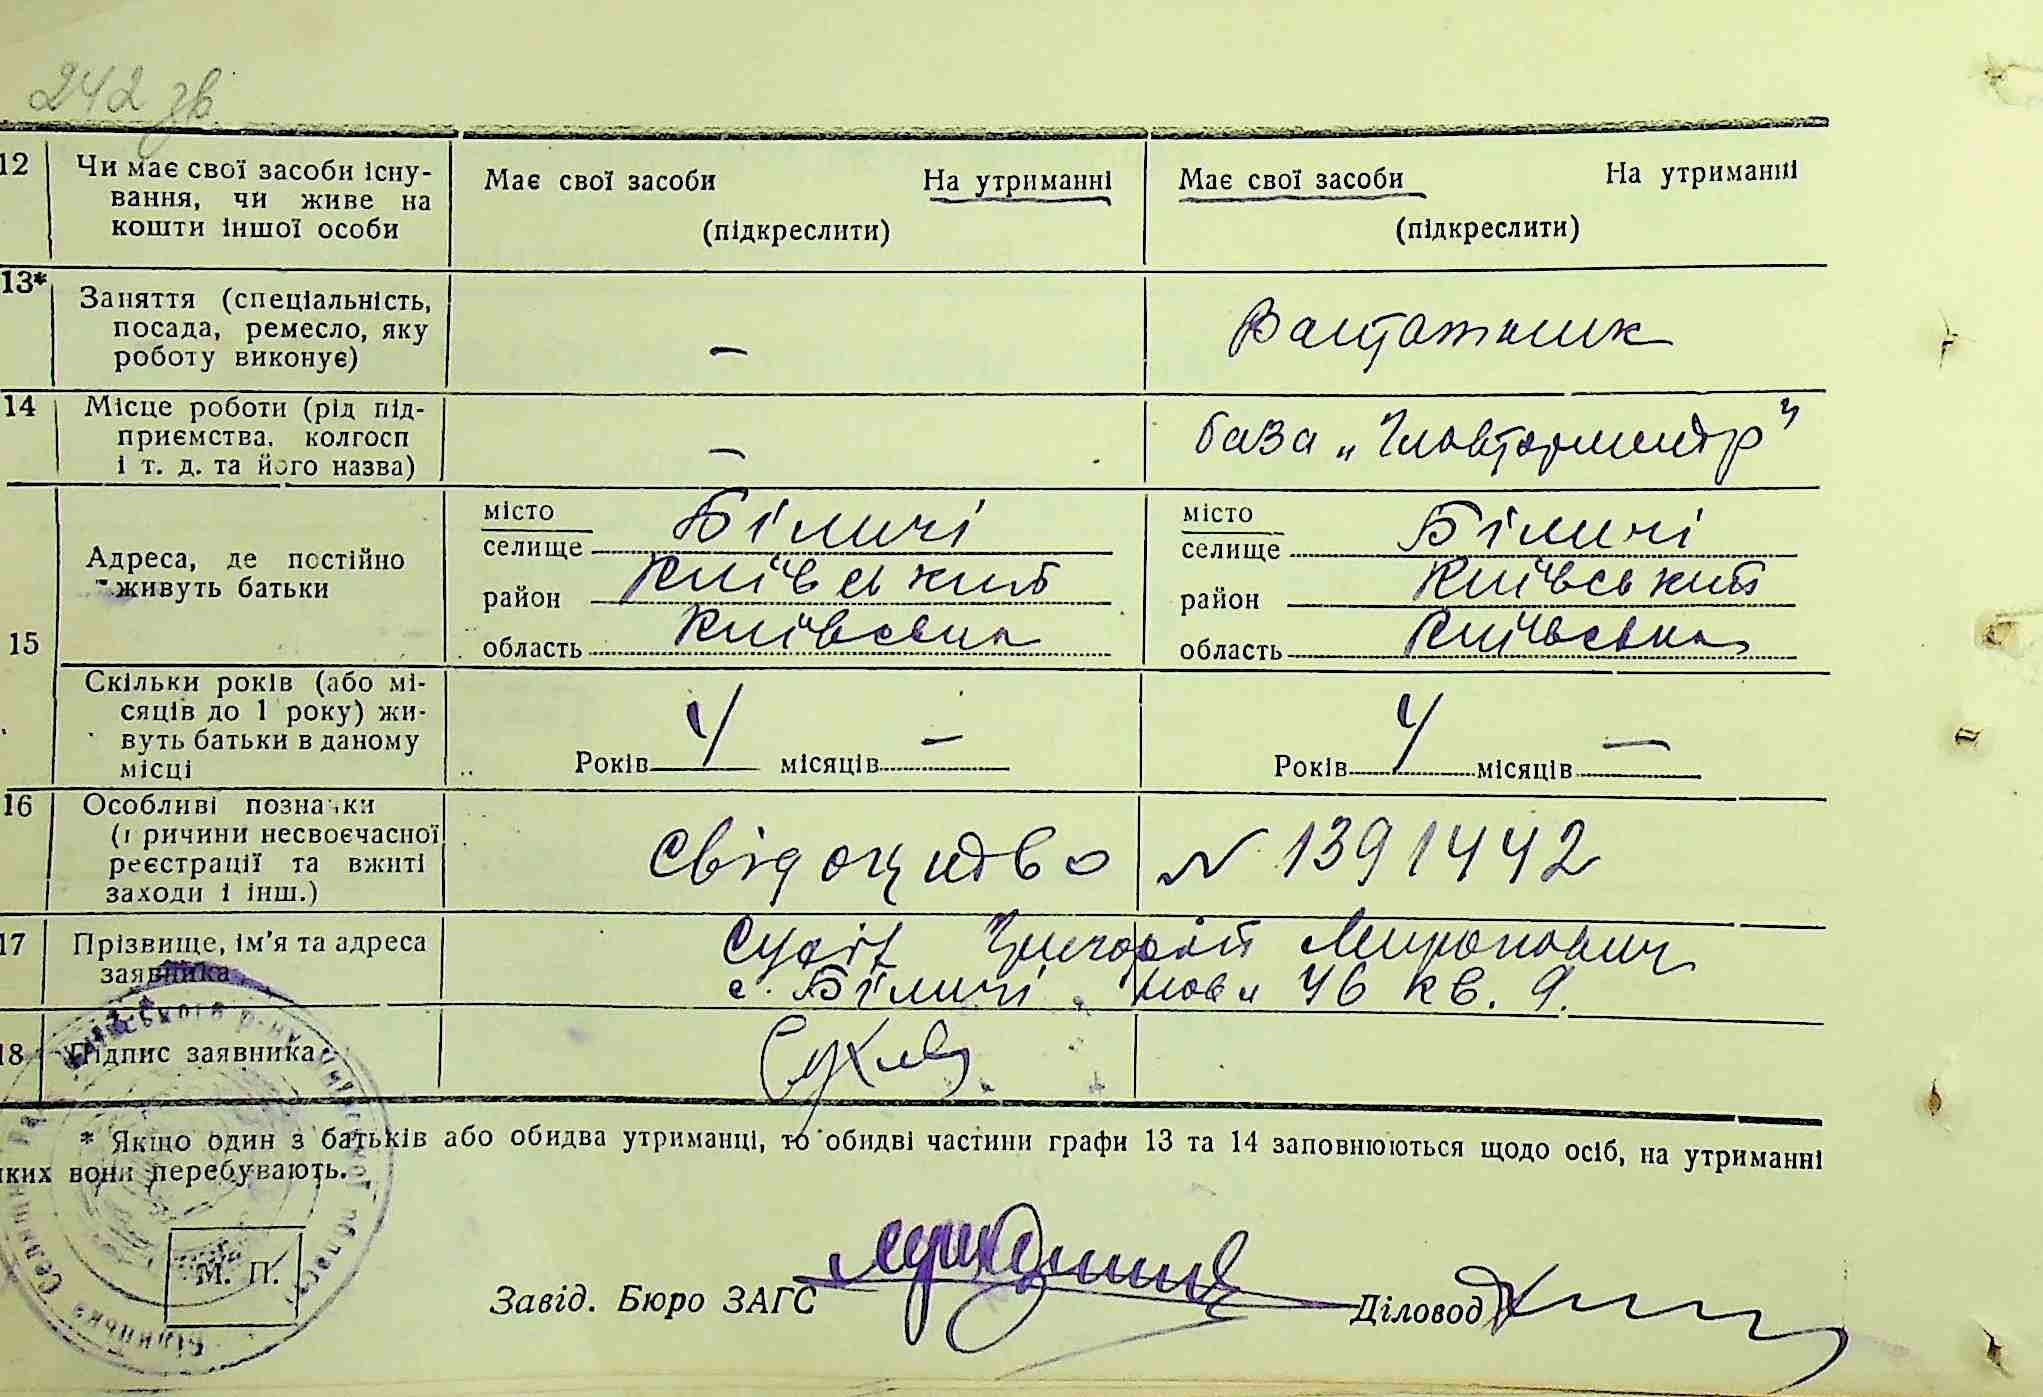 242 зв.
12 Чи має свої засоби існу-
вання, чи живе на
кошти іншої особи
Має свої засоби На утриманні
(підкреслити)
Має свої засоби На утриманні
(підкреслити)
13* Заняття (спеціальність,
посада, ремесло, яку
роботу виконує)
—
Вантажник
14 Місце роботи (рід під-
приємства, колгосп
і т. д. та його назва)
—
база „
15 Адреса, де постійно
живуть батьки
місто
селище Біличі
район Київський
область Київська
місто
селище Біличі
район Київський
область Київська
Скільки років (або мі-
сяців до 1 року) жи-
вуть батьки в даному
місці
Років 4 місяців —
Років 4 місяців —
16 Особливі позначки
(причини несвоєчасної
реєстрації та вжиті
заходи і інш.)
Свідоцтво N 1391442
17 Прізвище, ім'я та адреса
заявника
Григорій Миронович
с. Біличі 46 кв. 9.
18 Підпис заявника
* Якщо один з батьків або обидва утриманці, то обидві частини графи 13 та 14 заповнюються щодо осіб, на утриманні
яких вони перебувають.
М. П.
Завід. Бюро ЗАГС Діловод